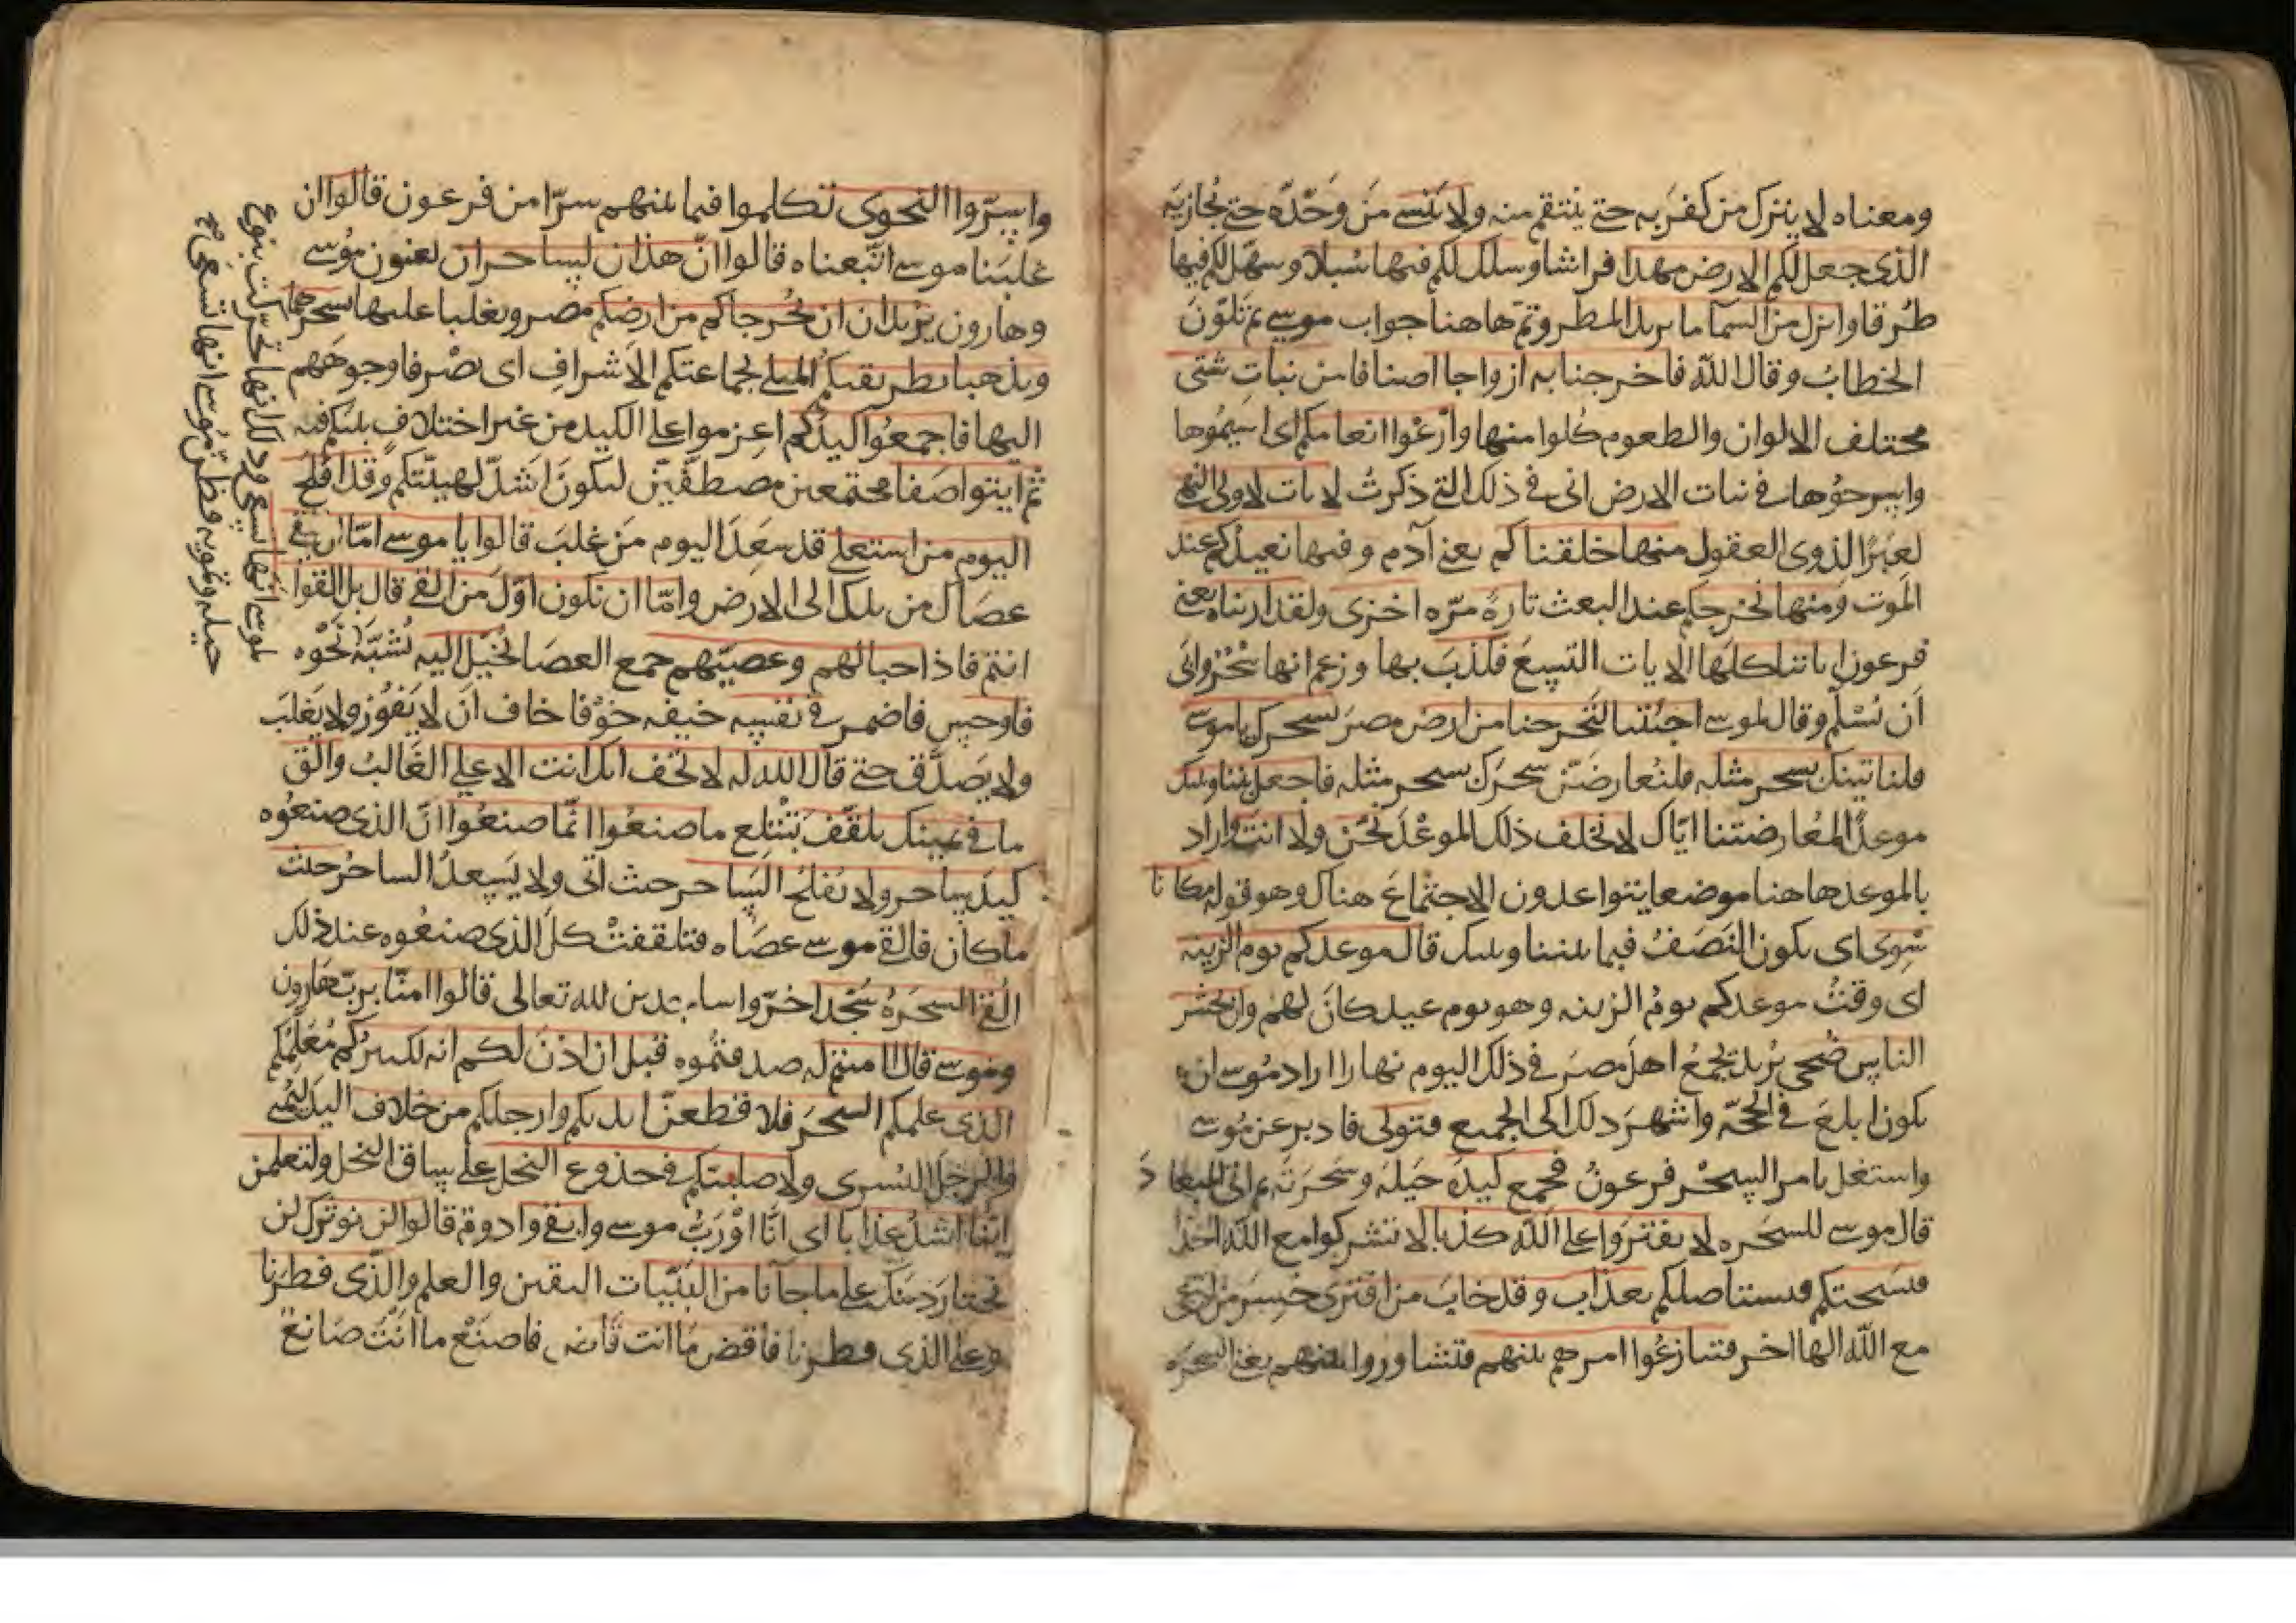 ومعناه لا يترك من كفر به حتى ينتقم منه ولا ينسى من وحّده حتى يجازيه
الذى جعل لكم الارض مهدا فراشا وسلك لكم فيها سبلا وسهّل لكم فيها
طرقا وانزل من السما ما يريد المطر وتمّ هاهنا جواب موسى ثم تلوّن
الخطاب وقال الله فاخرجنا به ازواجا اصنافا من نبات شتى
مختلف الالوان والطعوم كلوا منها وارعوا انعامكم اى اسيموها
واسرحوها فى نبات الارض ان فى ذلك التى ذكرت لايات لاولى النهى
لعبرًا لذوى العقول منها خلقناكم يعنى آدم وفيها نعيدكم عند
الموت ومنها نخرجكم عند البعث تارة مرّه اخرى ولقد اريناه يعنى
فرعون اياتنا كلها الايات التسع فكذب بها وزعم انها سحر وابى
ان يسلم وقال لموسى اجئتنا لتخرجنا من ارض مصر بسحرك ياموسى
فلناتينك بسحر مثله فلنعارضنّ سحرك بسحر مثله فاجعل بيننا وبينك
موعدًا لمعارضتنا ايّاك لا نخلف ذلك الموعد نحن ولا انت واراد
بالموعد هاهنا موضعا يتواعدون الاجتماع هناك وهو قوله مكانا
سوى اى يكون النصف فيما بيننا وبينك قال موعدكم يوم الزينه
اى وقت موعدكم يوم الزينه وهو يوم عيد كان لهم وان يحشر
الناس ضحى يريد يجمع اهل مصر فى ذلك اليوم نهارا اراد موسى ان
يكون ابلغ فى الحجّه واشهر ذلك الى الجميع فتولى فادبر عن موسى
واستغل بامر السحر فرعون فجمع كيده حيله وسحرته ثم اتى الميعاد
قال موسى للسحره لا تفتروا على الله كذبا لا تشركوا مع الله احدا
فيسحتكم فيستاصلكم بعذاب وقد خاب من افترى خسر من ادعى
مع الله الها اخر فتنازعوا امرهم بينهم فتشاوروا بينهم يعنى السحره
واسرّوا النجوى تكلموا فيما بينهم سرّا من فرعون قالوا ان
غلبنا موسى اتبعناه قالوا انّ هذان لساحران يعنون موسى
وهارون يريدان ان يخرجاكم من ارضكم مصر ويغلبا عليها بسحرهما
ويذهبا بطريقتكم المثلى بجماعتكم الاشراف اى يصرفا وجوههم
اليها فاجمعوا كيدكم اعزموا على الكيد من غير اختلاف بينكم فيه
ثم ايتوا صفا مجتمعين مصطفّين ليكون اشدّ لهيبتكم وقد افلح
اليوم من استعلى قد سعد اليوم من غلب قالوا يا موسى امّا ان تلقى
عصاك من يدك الى الارض وامّا ان نكون اوّل من القى قال بل القوا
انتم فاذا حبالهم وعصيّهم جمع العصا يخيّل اليه يشبّه نحوه
لموسى انها تسعى وذلك انها تحركت بنوع
حيله وتمويه وظنّ موسى انها تسعى
فاوجس فاضمر فى نفسه خيفه خوفا خاف ان لا يفوز ولا يغلب
ولا يصدّق حتى قال الله له لا تخف انك انت الاعلى الغالب والق
ما فى يمينك تلقف تبتلع ما صنعوا انّما صنعوا انّ الذى صنعوه
كيد ساحر ولا يفلح الساحر حيث اتى ولا يسعد الساحر حيث
ما كان فالقى موسى عصاه فتلقفت كل الذى صنعوه عند ذلك
القى السحرة سجّدا خرّوا ساجدين لله تعالى قالوا امنّا برب هارون
وموسى قال امنتم له صدقتموه قبل ان اذن لكم انه لكبيركم معلّمكم
الذى علمكم السحر فلاقطعنّ ايديكم وارجلكم من خلاف اليد اليمنى
والرجل اليسرى ولاصلبنكم فى جذوع النخل على ساق النخل ولتعلمن
ايّنا اشدّ عذابا اى انّا او ربّ موسى وابقى وادوم قالوا لن نوترك لن
نختارَ دينك على ما جآنا من البيّنات اليقين والعلم والذى فطرنا
وعلى الذى فطرنا فاقض ما انت قاض فاصنع ما انت صانع